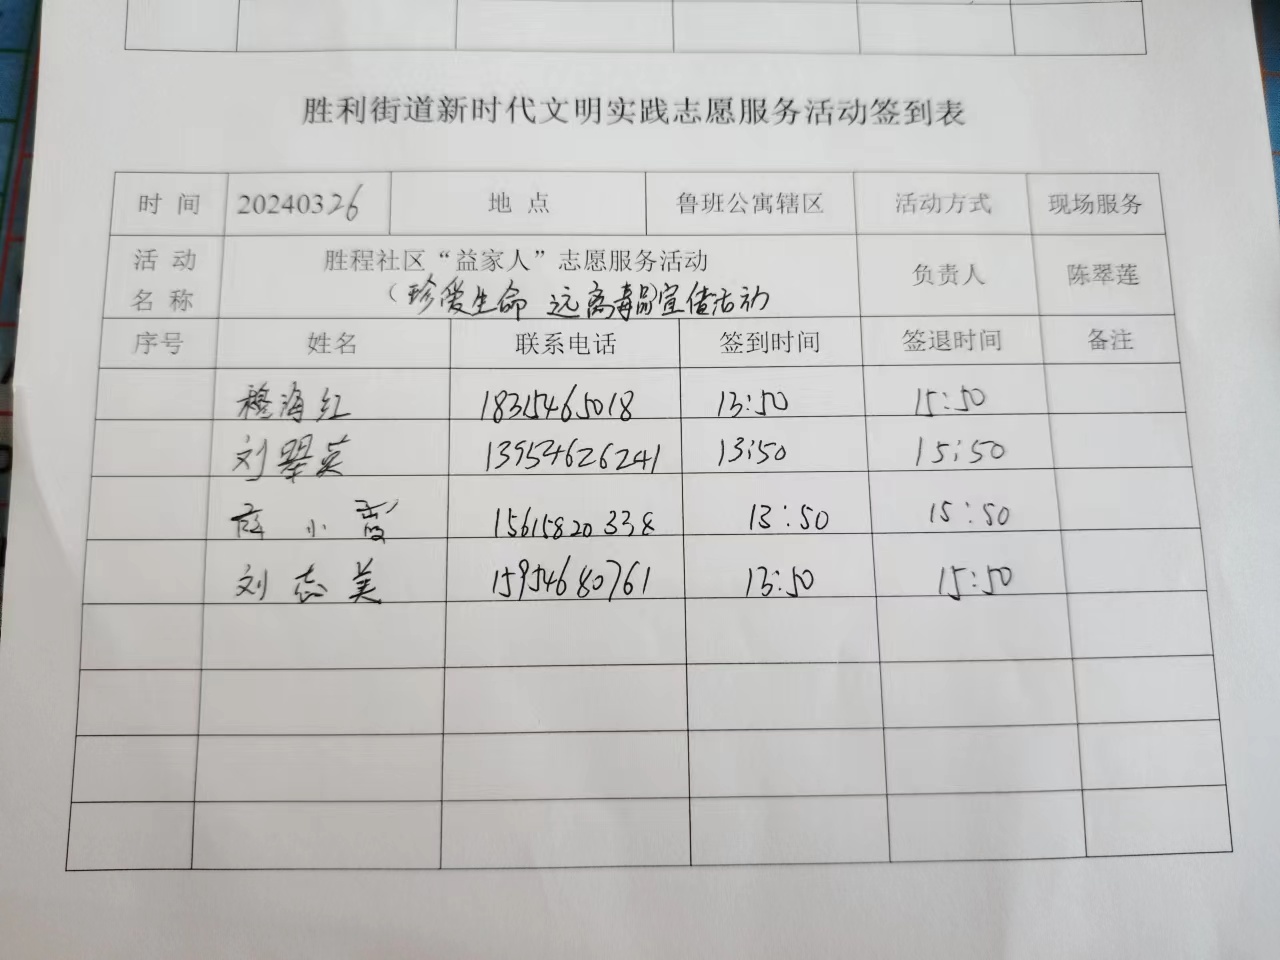 胜利街道新时代文明实践志愿服务活动签到表
时 间 20240326 地 点 鲁班公寓辖区 活动方式 现场服务
活 动 名 称 胜程社区“益家人”志愿服务活动 负责人 陈翠莲
（珍爱生命 远离毒品宣传活动
序号 姓名 联系电话 签到时间 签退时间 备注
穆海红 18315465018 13:50 15:50
刘翠英 13954626241 13:50 15:50
薛小霞 15615820338 13:50 15:50
刘志美 15954680761 13:50 15:50